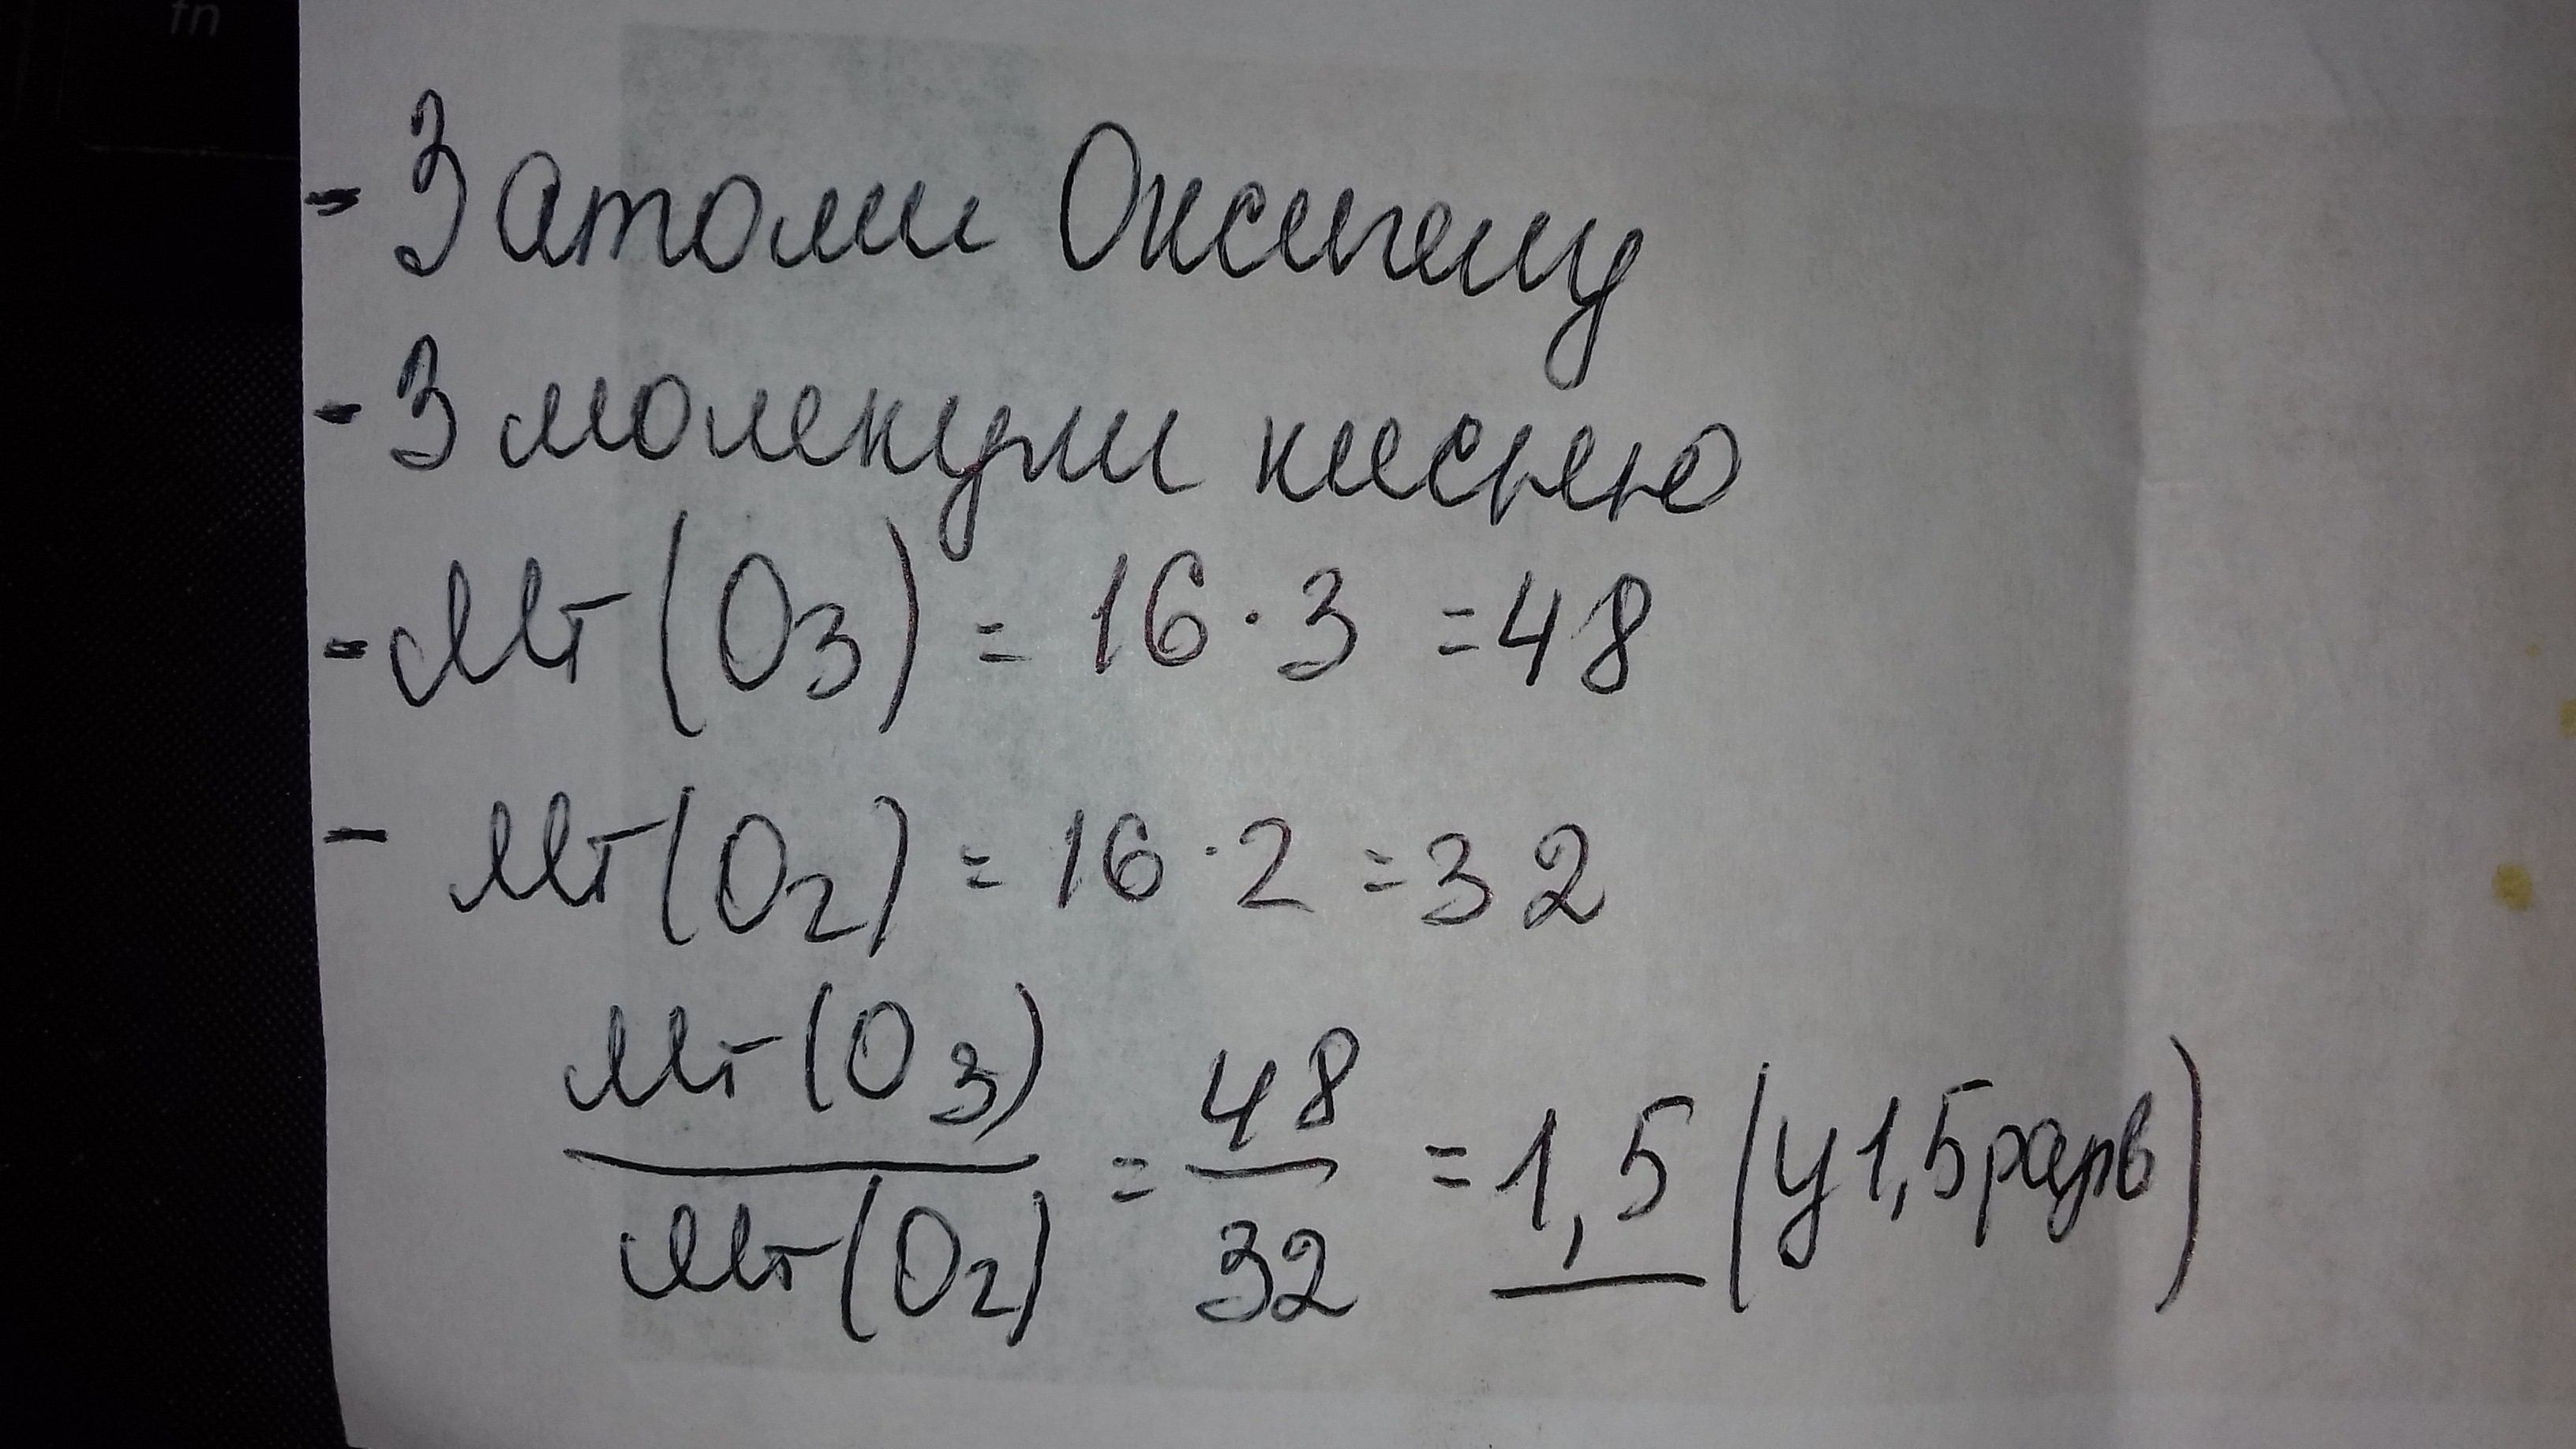 fn
- 3 атоми Оксигену
- 3 молекули кисню
- Mr(O3) = 16·3 = 48
- Mr(O2) = 16·2 = 32
Mr(O3) / Mr(O2) = 48 / 32 = 1,5 (у 1,5 разів)